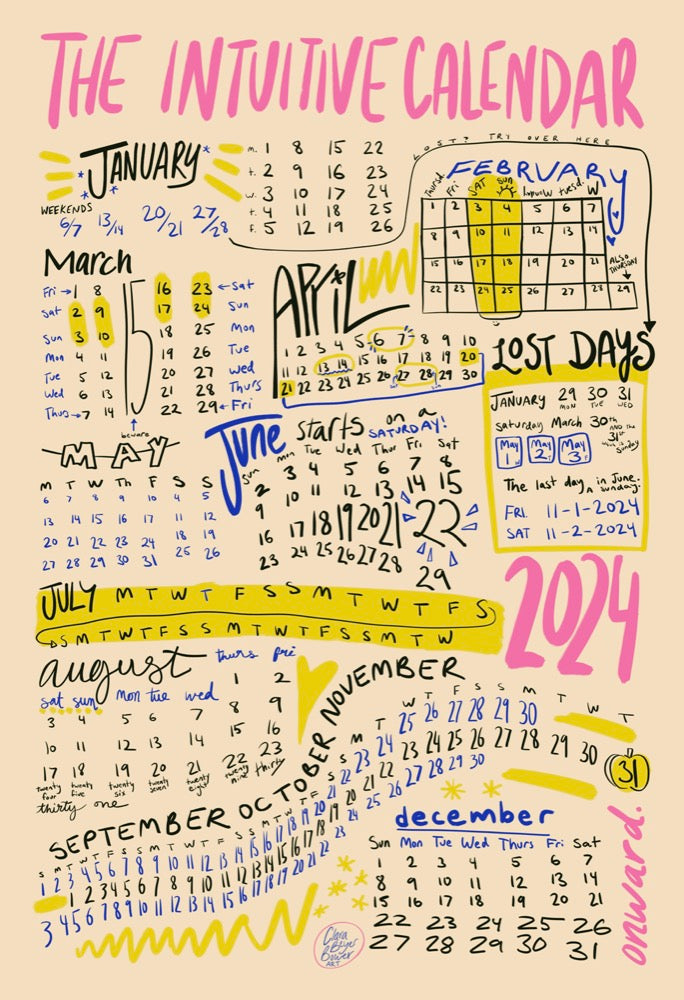 THE INTUITIVE CALENDAR
LOST? TRY OVER HERE
JANUARY
WEEKENDS
6/7 13/14 20/21 27/28
M. 1 8 15 22
T. 2 9 16 23
W. 3 10 17 24
T. 4 11 18 25
F. 5 12 19 26
FEBRUARY
Thurs Fri SAT sun tues. W
1 2 3 4 5 6 7
8 9 10 11 12 13 14
15 16 17 18 19 20 21
22 23 24 25 26 27 28 29
ALSO THURSDAY
March
Fri → 1 8 15 16 23 ← Sat
Sat 2 9 17 24 Sun
Sun 3 10 18 25 Mon
Mon 4 11 19 26 Tue
Tue 5 12 20 27 Wed
Wed 6 13 21 28 Thurs
Thurs → 7 14 22 29 ← Fri
beware
APRIL
1 2 3 4 5 6 7 8 9 10
11 12 13 14 15 16 17 18 19 20
21 22 23 24 25 26 27 28 29 30
LOST DAYS
JANUARY 29 30 31
MON TUE WED
saturday March 30th
AND THE 31st
sunday
May 1 May 2 May 3
The last day in June.
sunday.
FRI. 11-1-2024
SAT 11-2-2024
MAY
M T W Th F S S
6 7 8 9 10 4 5
13 14 15 16 17 11 12
20 21 22 23 24 18 19
27 28 29 30 31 25 26
June starts on a
SATURDAY!
Sun Mon Tue Wed Thur Fri Sat
2 3 4 5 6 7 8
9 10 11 12 13 14 15
16 17 18 19 20 21 22
23 24 25 26 27 28 29
2024
JULY M T W T F S S M T W T F S
S M T W T F S S M T W T F S S M T W
august thurs fri
sat sun Mon tue wed 1 2
3 4 5 6 7 8 9
10 11 12 13 14 15 16
17 18 19 20 21 22 23
twenty four twenty five twenty six twenty seven twenty eight twenty nine thirty
thirty one
SEPTEMBER OCTOBER NOVEMBER
S M T W T F S S M T W T F S S M T W T F S S M T W T F S S M T W T
1 2 3 4 5 6 7 8 9 10 11 12 13 14 15 16 17 18 19 20 21 22 23 24 25 26 27 28 29 30
1 2 3 4 5 6 7 8 9 10 11 12 13 14 15 16 17 18 19 20 21 22 23 24 25 26 27 28 29 30 31
3 4 5 6 7 8 9 10 11 12 13 14 15 16 17 18 19 20 21 22 23 24 25 26 27 28 29 30
december
Sun Mon Tue Wed Thurs Fri Sat
1 2 3 4 5 6 7
8 9 10 11 12 13 14
15 16 17 18 19 20 21
22 23 24 25 26
27 28 29 30 31
onward.
Clara Beyer Bower ART